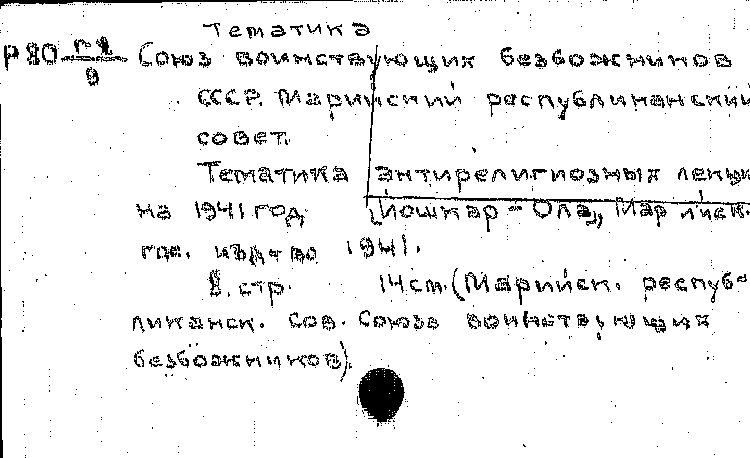 Тематика
Р 80 Союз воинствующих безбожников
СССР. Марийский республиканский
совет.
Тематика антирелигиозных лекци
на 1941 год. [Йошкар-Ола], Марийск.
гос. изд-во 1941.
2. стр. 14 см. (Марийск. респуб-
ликанск. Сов. Союза воинствующих
безбожников).